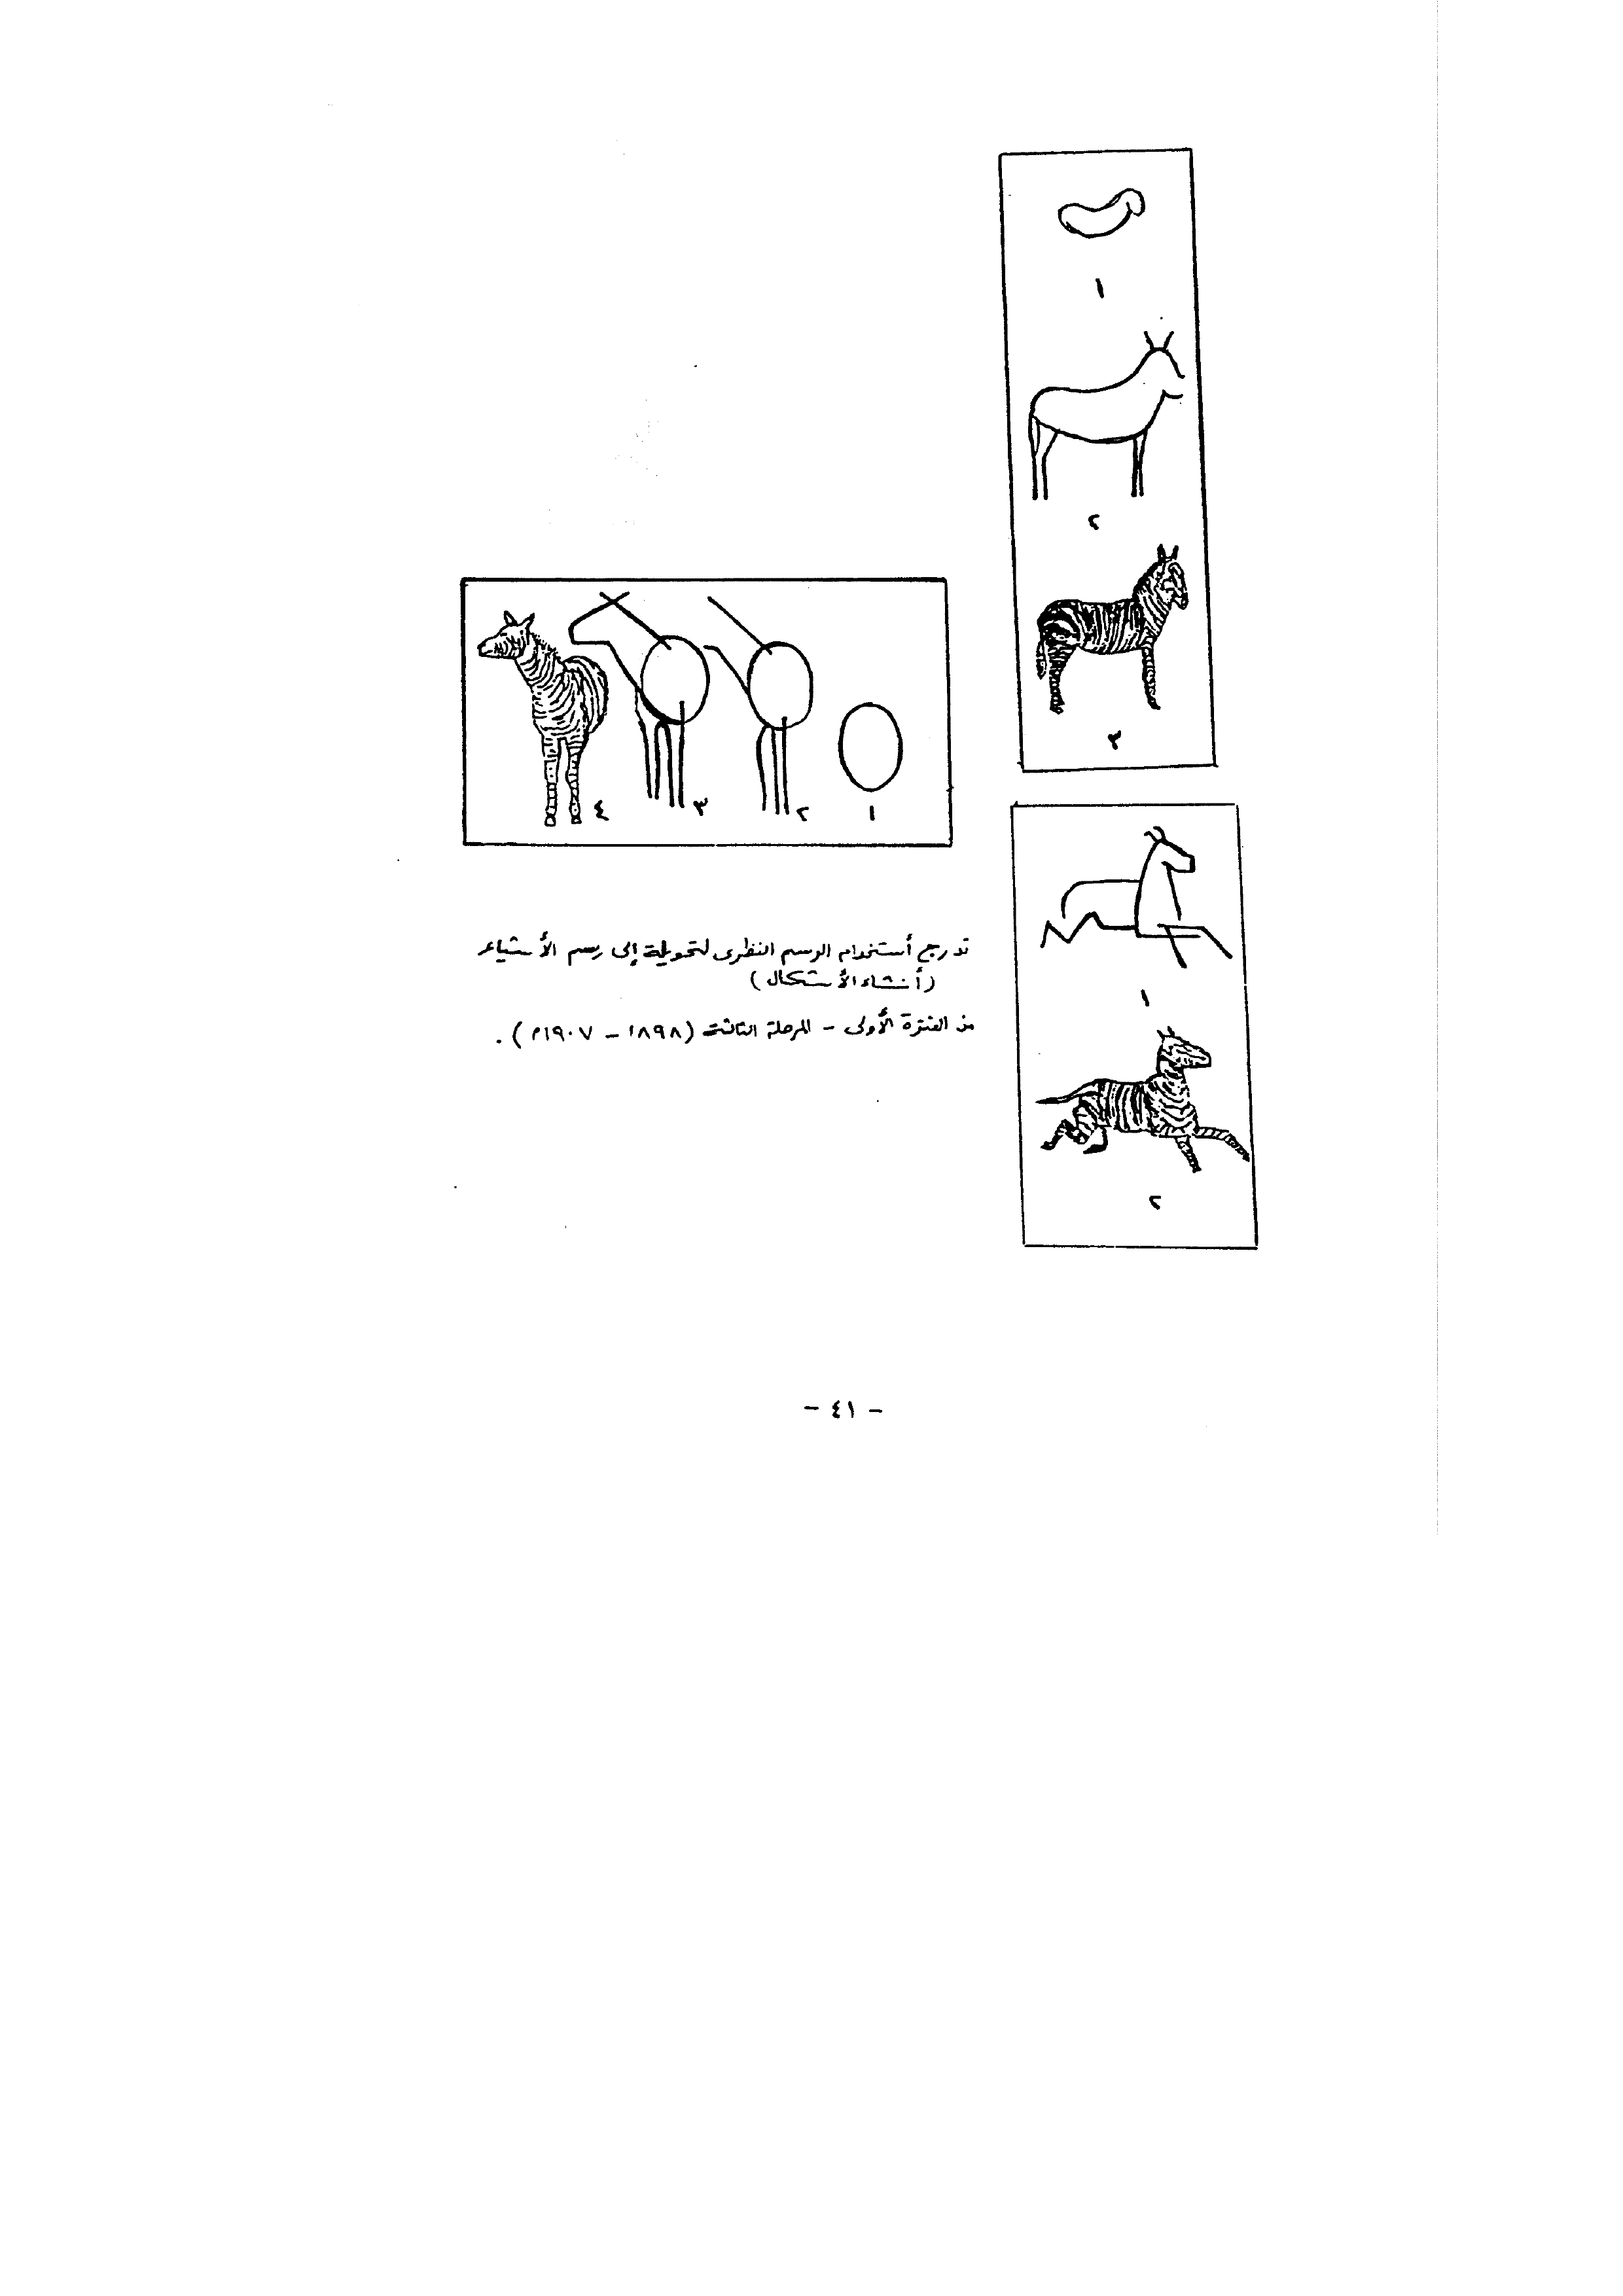 ١
٢
٣
٤ ٣ ٢ ١
١
٢
تدرج أستخدام الرسم النظرى لتحويلة إلى رسم الأشياء
(أنشاء الأشكال)
من الفترة الأولى - المرحلة الثالثة (١٨٩٨ - ١٩٠٧م).
- ٤١ -